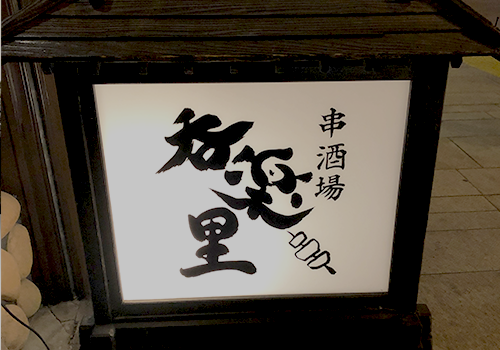 串酒場
呑楽里